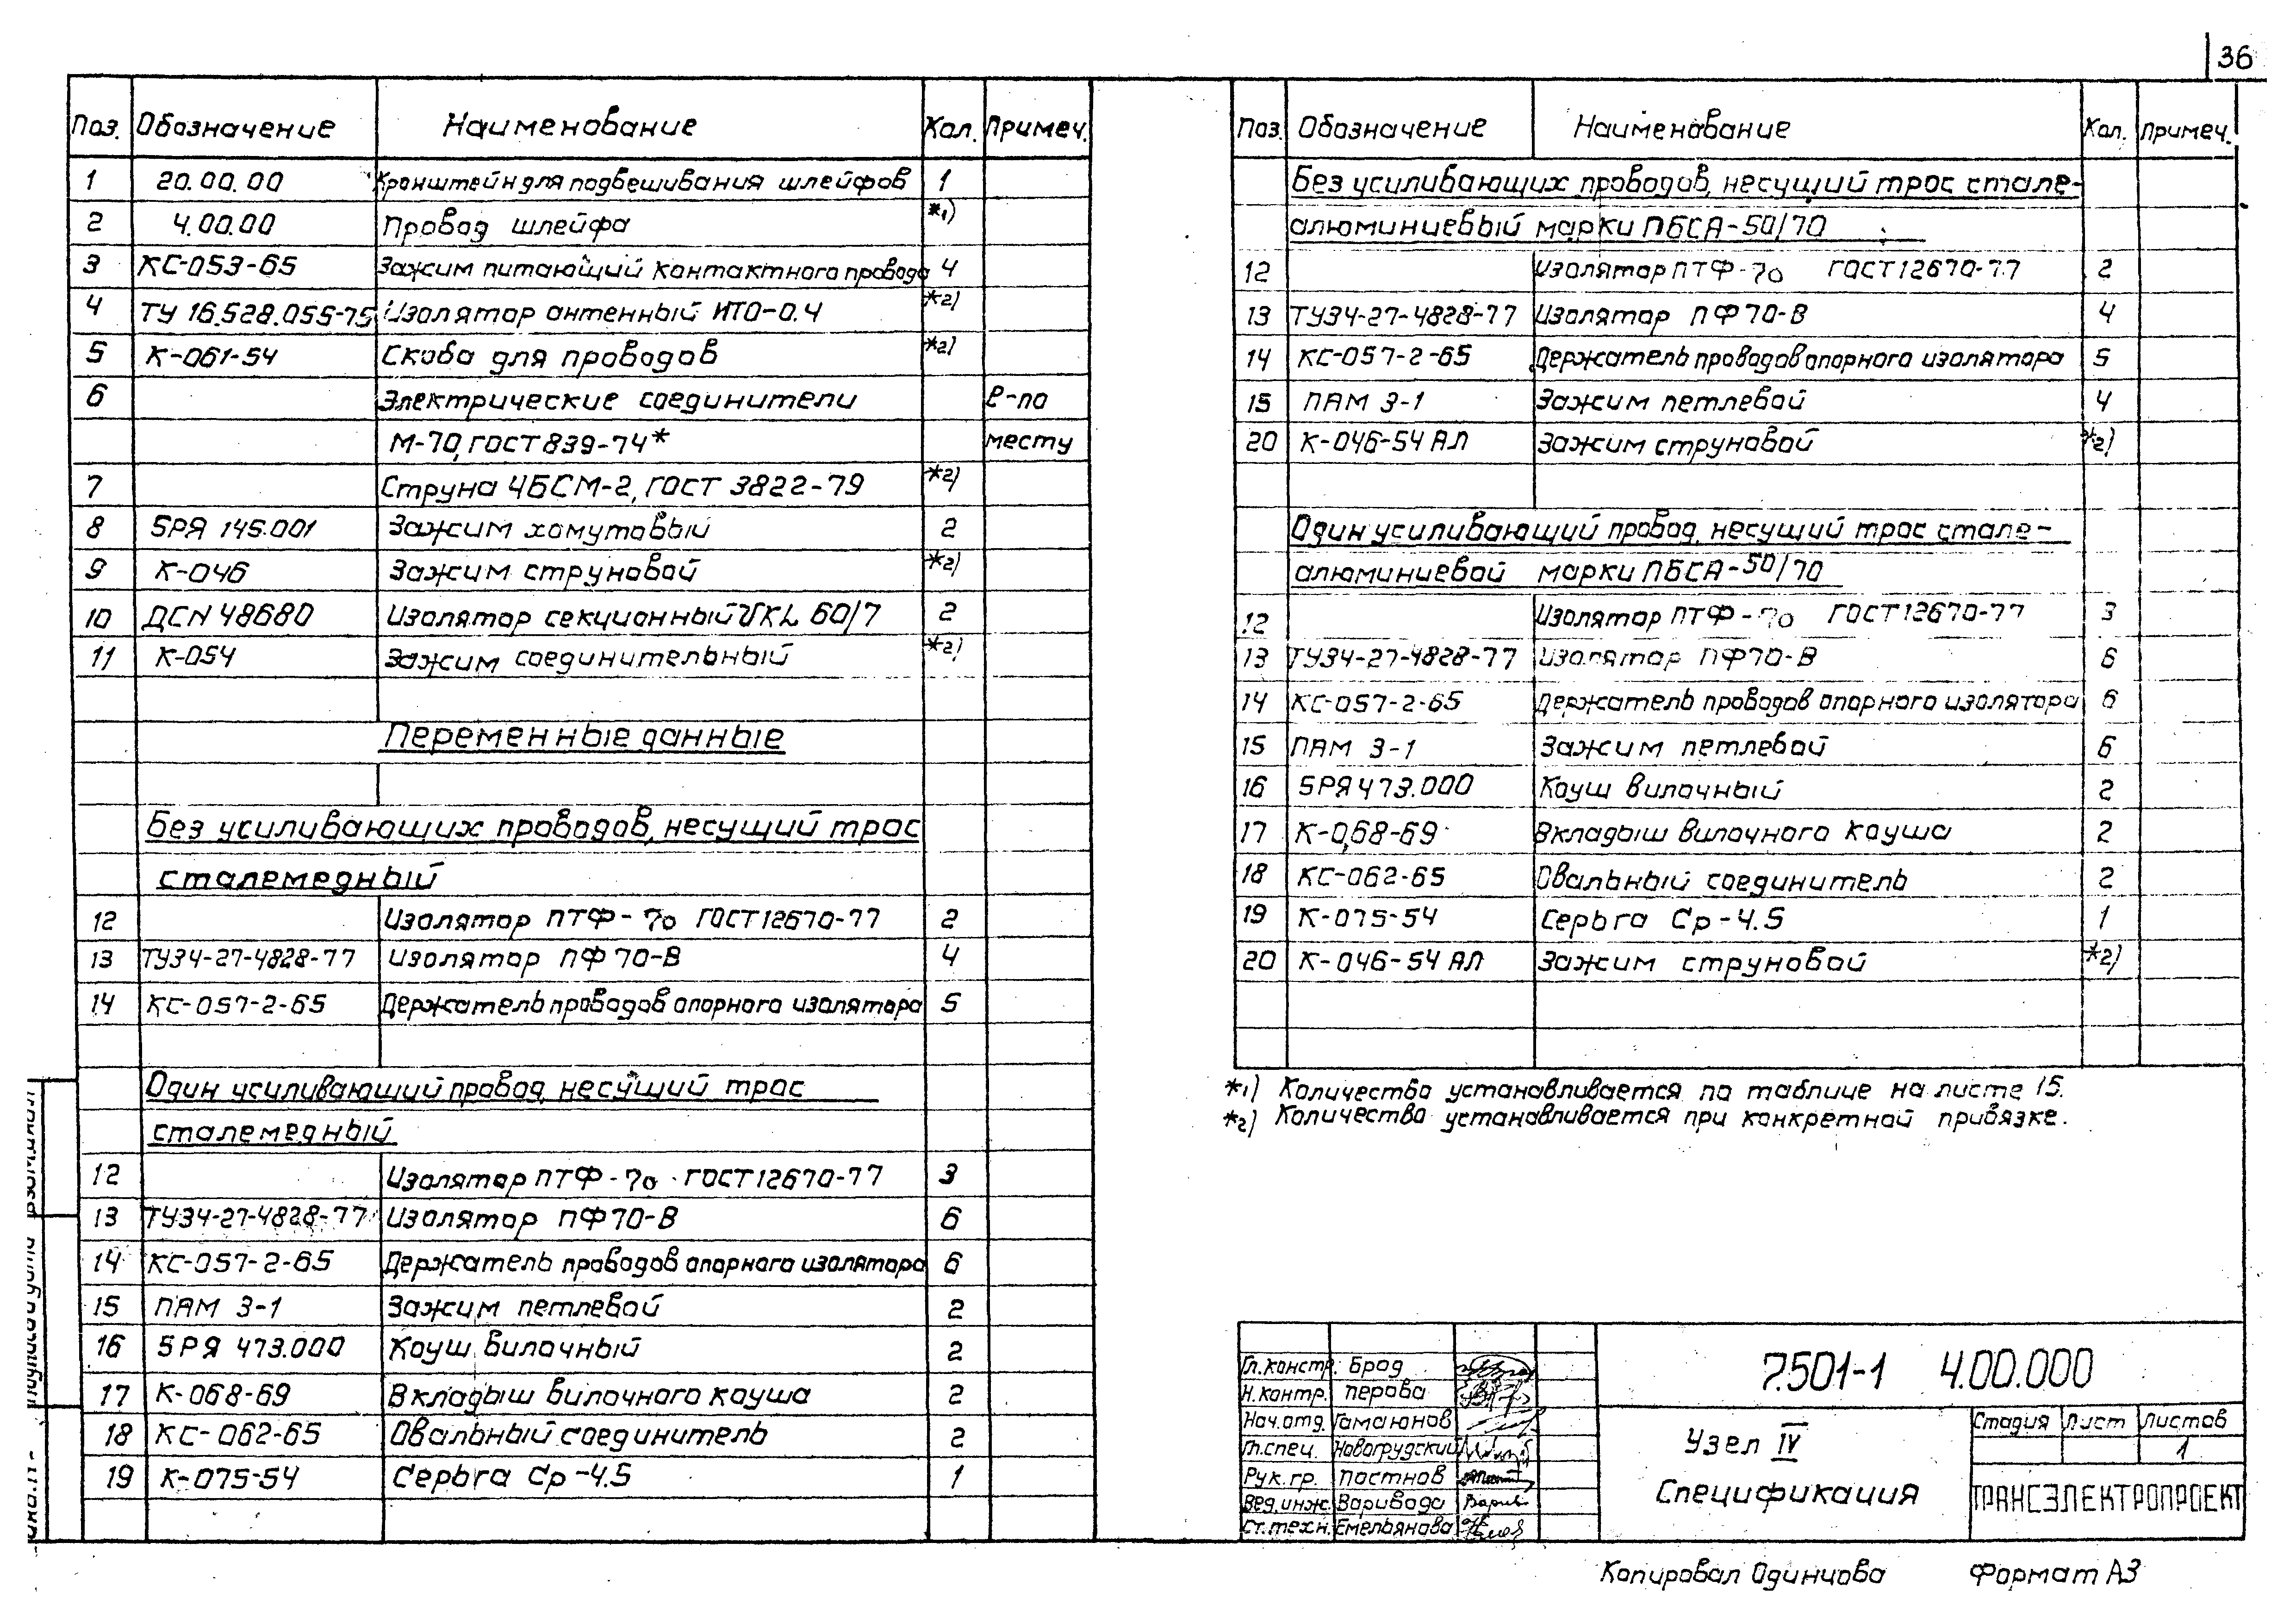 36
Поз. Обозначение Наименование Кол. Примеч.
1 20.00.00 Кронштейн для подвешивания шлейфов 1
2 4.00.00 Провод шлейфа *1)
3 КС-053-65 Зажим питающий контактного провода 4
4 ТУ 16.528.055-75 Изолятор антенный ИТО-0.4 *2)
5 К-061-54 Скоба для проводов *2)
6 Электрические соединители ℓ-по
М-70, ГОСТ 839-74* месту
7 Струна 4БСМ-2, ГОСТ 3822-79 *2)
8 5РЯ 145.001 Зажим хомутовый 2
9 К-046 Зажим струновой *2)
10 ДСN 48680 Изолятор секционный УКL 60/7 2
11 К-054 Зажим соединительный *2)
Переменные данные
Без усиливающих проводов, несущий трос
сталемедный
12 Изолятор ПТФ-70 ГОСТ 12670-77 2
13 ТУ34-27-4828-77 Изолятор ПФ70-В 4
14 КС-057-2-65 Держатель проводов опорного изолятора 5
Один усиливающий провод, несущий трос
сталемедный
12 Изолятор ПТФ-70 ГОСТ 12670-77 3
13 ТУ34-27-4828-77 Изолятор ПФ70-В 6
14 КС-057-2-65 Держатель проводов опорного изолятора 6
15 ПАМ 3-1 Зажим петлевой 2
16 5РЯ 473.000 Коуш вилочный 2
17 К-068-69 Вкладыш вилочного коуша 2
18 КС-062-65 Овальный соединитель 2
19 К-075-54 Серьга Ср-4.5 1
Поз. Обозначение Наименование Кол. Примеч.
Без усиливающих проводов, несущий трос стале-
алюминиевый марки ПБСА-50/70
12 Изолятор ПТФ-70 ГОСТ 12670-77 2
13 ТУ34-27-4828-77 Изолятор ПФ70-В 4
14 КС-057-2-65 Держатель проводов опорного изолятора 5
15 ПАМ 3-1 Зажим петлевой 4
20 К-046-54 АЛ Зажим струновой *2)
Один усиливающий провод, несущий трос стале-
алюминиевой марки ПБСА-50/70
12 Изолятор ПТФ-70 ГОСТ 12670-77 3
13 ТУ34-27-4828-77 Изолятор ПФ70-В 6
14 КС-057-2-65 Держатель проводов опорного изолятора 6
15 ПАМ 3-1 Зажим петлевой 6
16 5РЯ 473.000 Коуш вилочный 2
17 К-068-69 Вкладыш вилочного коуша 2
18 КС-062-65 Овальный соединитель 2
19 К-075-54 Серьга Ср-4.5 1
20 К-046-54 АЛ Зажим струновой *2)
*1) Количество устанавливается по таблице на листе 15.
*2) Количество устанавливается при конкретной привязке.
Гл.констр. Брод
Н.контр. Перова
Нач.отд. Гамаюнов
Гл.спец. Новогрудский
Рук.гр. Постнов
Вед.инж. Варивода
Ст.техн. Емельянова
7.501-1 4.00.000
Узел IV
Спецификация
Стадия Лист Листов
1
ТРАНСЭЛЕКТРОПРОЕКТ
Копировал Одинцова Формат А3